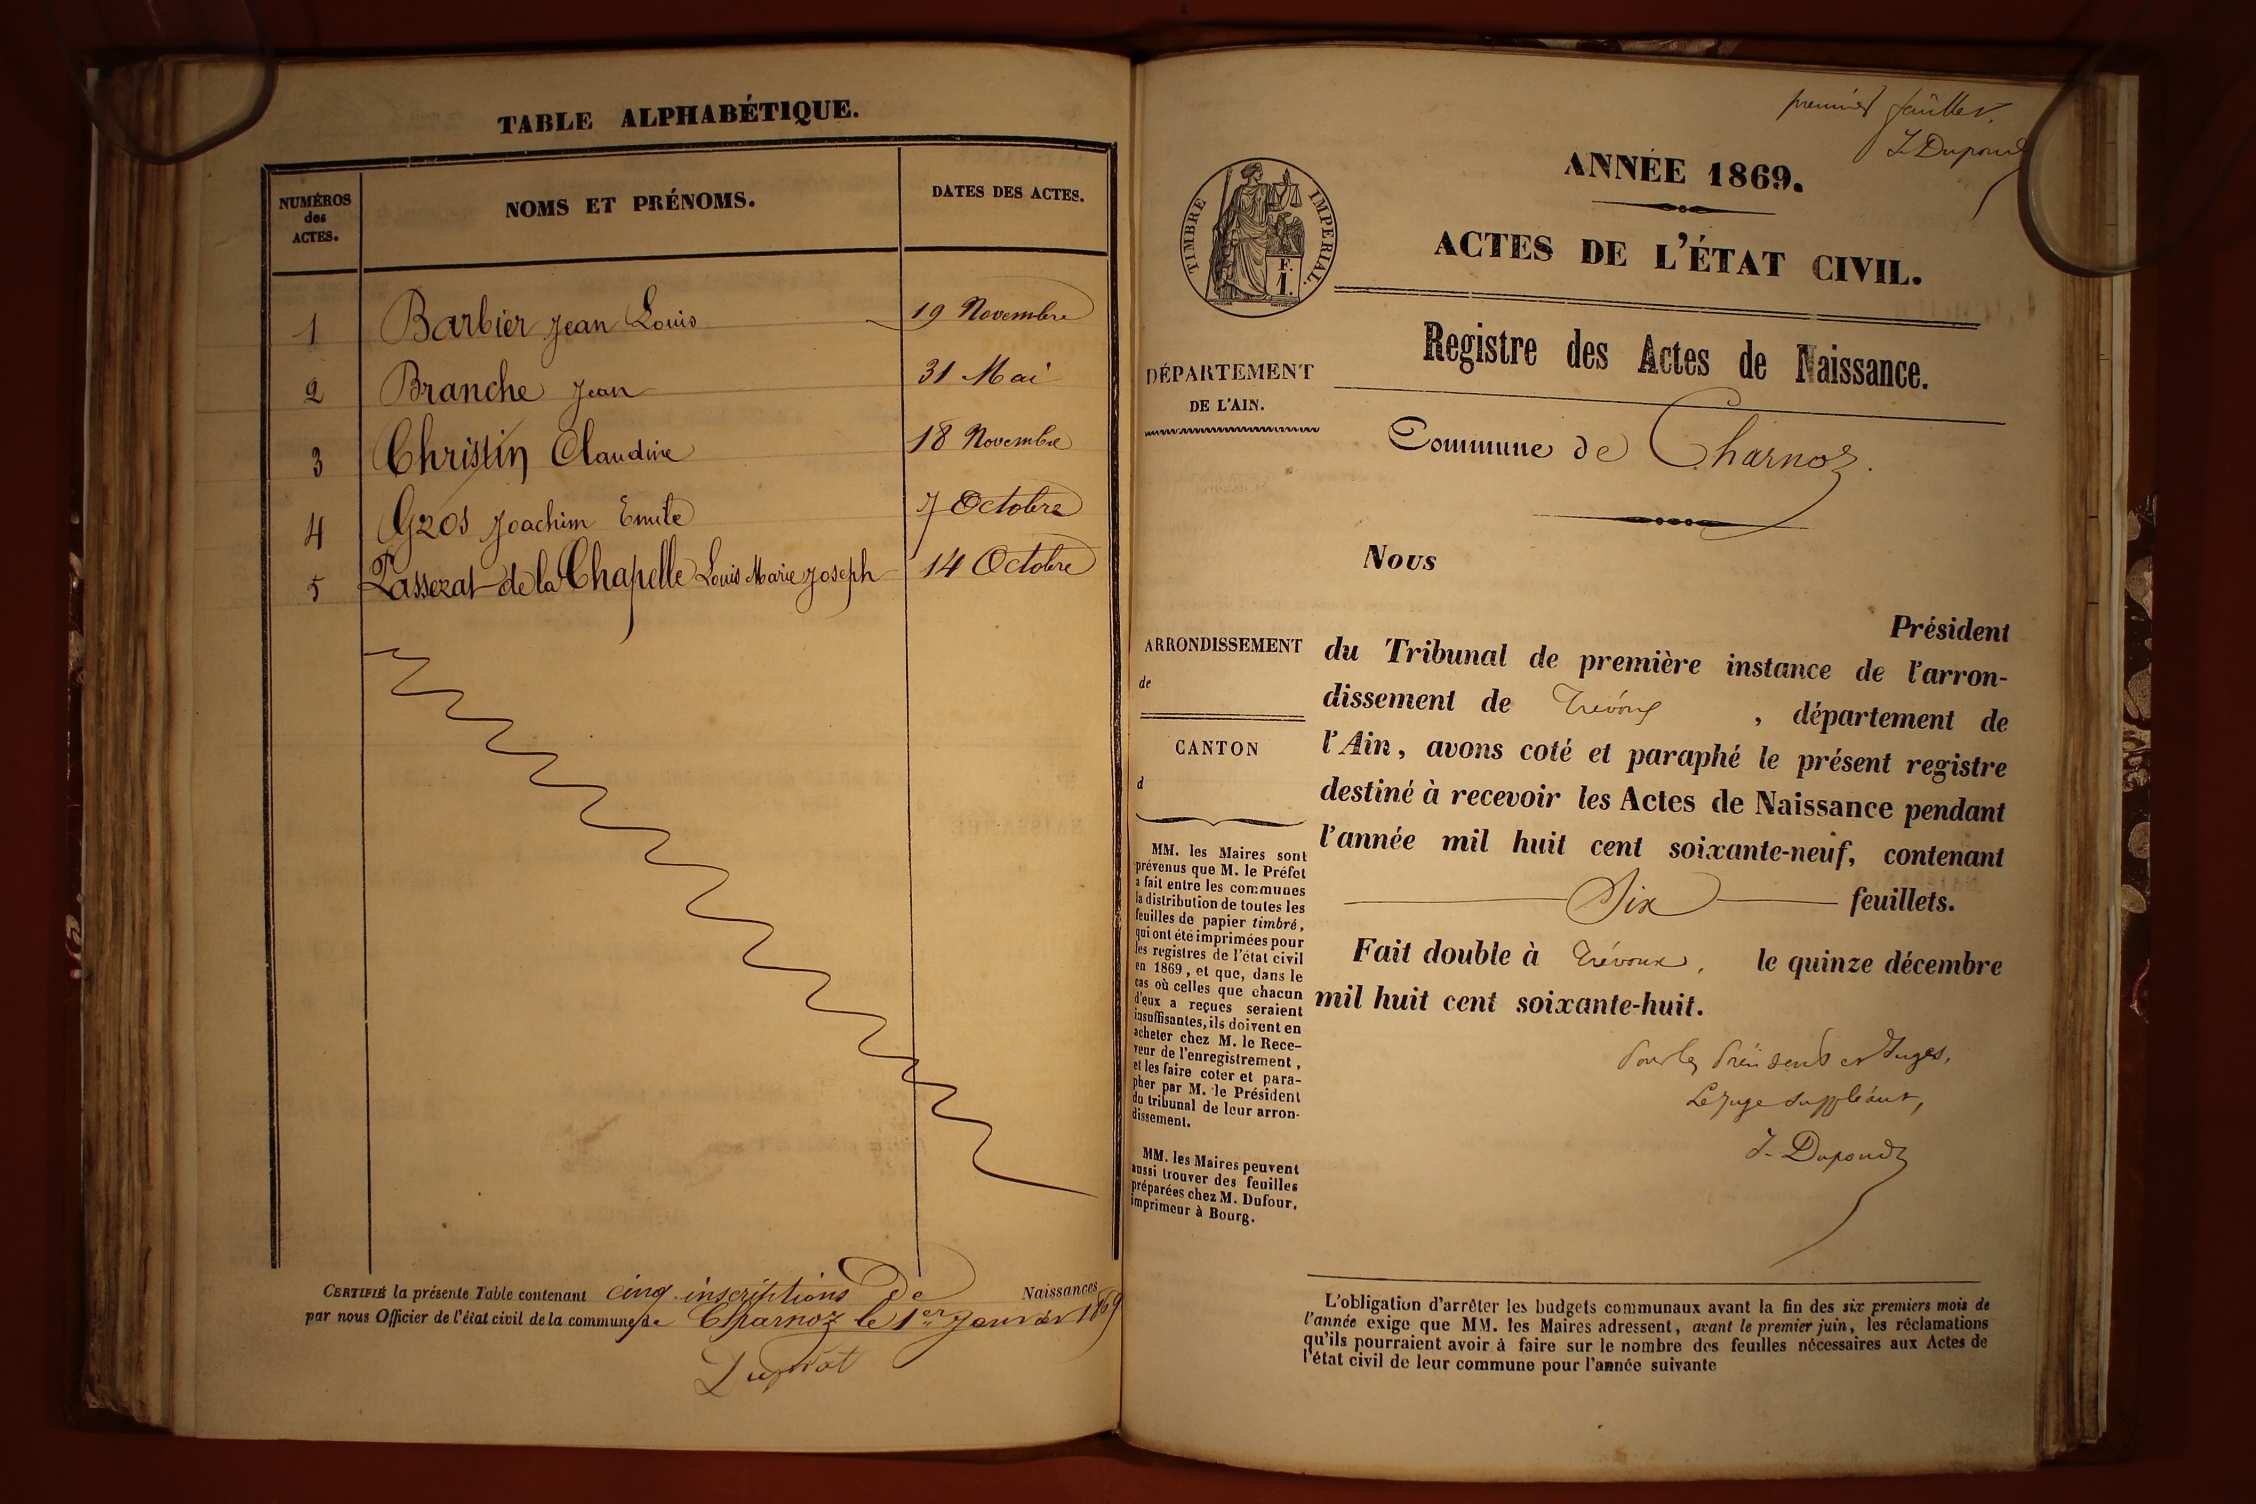 TABLE ALPHABÉTIQUE.
NUMÉROS
des
ACTES.
NOMS ET PRÉNOMS.
DATES DES ACTES.
1 Barbier Jean Louis 19 Novembre
2 Branche Jean 31 Mai
3 Christin Claudine 18 Novembre
4 Gros Joachim Emile 7 Octobre
5 Passerat de la Chapelle Louis Marie Joseph 14 Octobre
CERTIFIÉ la présente Table contenant cinq inscriptions De Naissances
par nous Officier de l'état civil de la commune de Charnoz le 1er Janvier 1869
premier feuillet.
J. Dupond
ANNÉE 1869.
TIMBRE IMPERIAL.
F.
1.
ACTES DE L'ÉTAT CIVIL.
Registre des Actes de Naissance.
DÉPARTEMENT
DE L'AIN.
Commune de Charnoz.
Nous
Président
ARRONDISSEMENT
de
CANTON
d
du Tribunal de première instance de l'arron-
dissement de Trévoux , département de
l'Ain, avons coté et paraphé le présent registre
destiné à recevoir les Actes de Naissance pendant
l'année mil huit cent soixante-neuf, contenant
Six feuillets.
Fait double à Trévoux, le quinze décembre
mil huit cent soixante-huit.
Pour les Présidents et Juges,
Le Juge suppléant,
J. Dupond
MM. les Maires sont
prévenus que M. le Préfet
a fait entre les communes
la distribution de toutes les
feuilles de papier timbré,
qui ont été imprimées pour
les registres de l'état civil
en 1869, et que, dans le
cas où celles que chacun
d'eux a reçues seraient
insuffisantes, ils doivent en
acheter chez M. le Rece-
veur de l'enregistrement,
et les faire coter et para-
pher par M. le Président
du tribunal de leur arron-
dissement.
MM. les Maires peuvent
aussi trouver des feuilles
préparées chez M. Dufour,
imprimeur à Bourg.
L'obligation d'arrêter les budgets communaux avant la fin des six premiers mois de
l'année exige que MM. les Maires adressent, avant le premier juin, les réclamations
qu'ils pourraient avoir à faire sur le nombre des feuilles nécessaires aux Actes de
l'état civil de leur commune pour l'année suivante